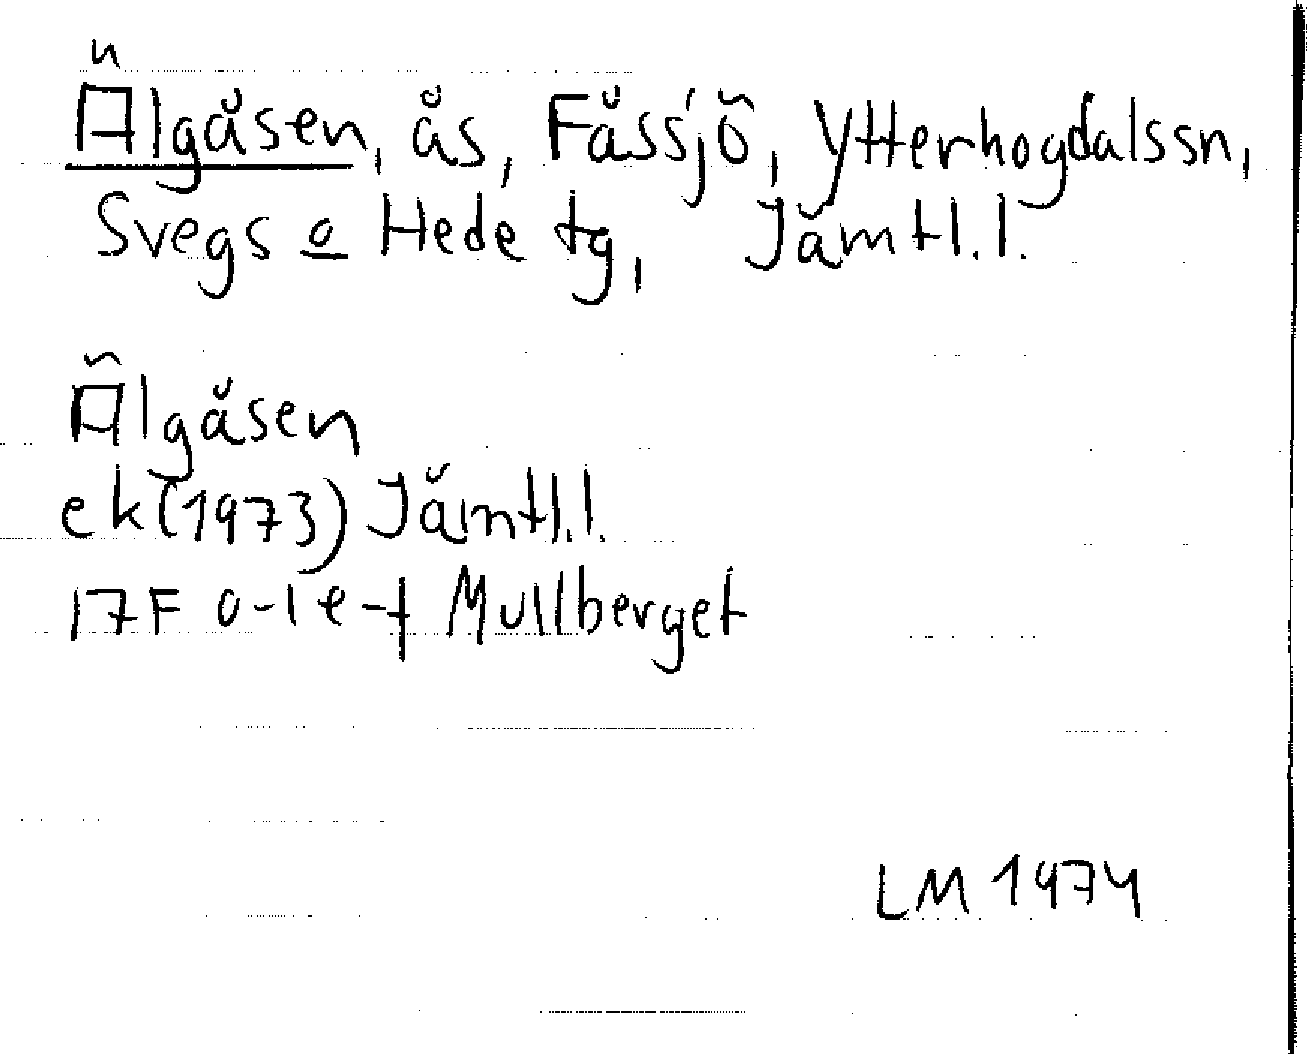 Älgåsen, ås, Fåssjö, Ytterhogdalssn,
Svegs o Hede tg, Jämtl.l.
Älgåsen
ek(1973) Jämtl.l.
17F o-1 e-f Mullberget
LM 1974